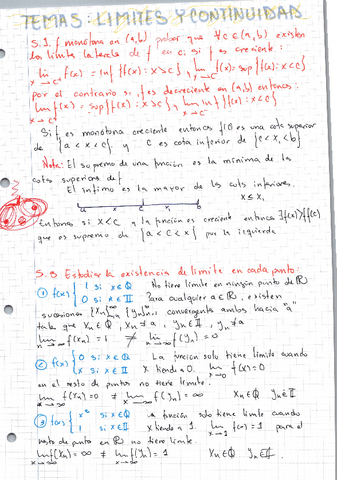 TEMA 5: LIMITES Y CONTINUIDAD
5.1. f monótona en (a,b) probar que ∀c∈(a,b) existen
los limite laterales de f en c; si f es creciente:
lim x→c⁺ f(x) = inf {f(x): x>c} y lim x→c⁻ f(x) = sup {f(x): x<c}
por el contrario si f es decreciente en (a,b) entonces:
lim f(x) = sup {f(x): x>c} y lim inf {f(x): x<c}
Si f es monótona creciente entonces f(c) es una cota superior
de {a<x<c} y c es cota inferior de {c<x<b}
Nota: El supremo de una función es la mínima de las
cotas superiores de f
El infimo es la mayor de las cots inferiores.
a x c x b x≤x₁
Entonces si x<c y la función es creciente entonces f(x)>f(c)
que es supremo de {a<c<x} por la izquierda
5.8 Estudiar la existencia de limite en cada punto:
① f(x) { 1 si x∈Q No tiene limite en ningún punto de ℝ
0 si x∈𝕀 Para cualquier a∈ℝ, existen
sucesiones {xn} y {yn} convergente ambos hacia "a"
tales que xn∈Q, xn≠a, yn∈𝕀, yn≠a
lim f(xn) = 1 ≠ lim f(yn) = 0
② f(x) { 0 si x∈Q La función solo tiene limite cuando
x si x∈𝕀 x tiende a 0. lim x→0 f(x) = 0
en el resto de puntos no tiene limite.
lim x→∞ f(xn) = 0 ≠ lim x→∞ f(yn) = ∞ xn∈Q yn∈𝕀
③ f(x) { x² si x∈Q La función solo tiene limite cuando
1 si x∈𝕀 x tiende a 1. lim x→1 f(x) = 1 para el
resto de punto en ℝ no tiene limite.
lim x→∞ f(xn) = ∞ ≠ lim x→∞ f(yn) = 1 xn∈Q yn∈𝕀